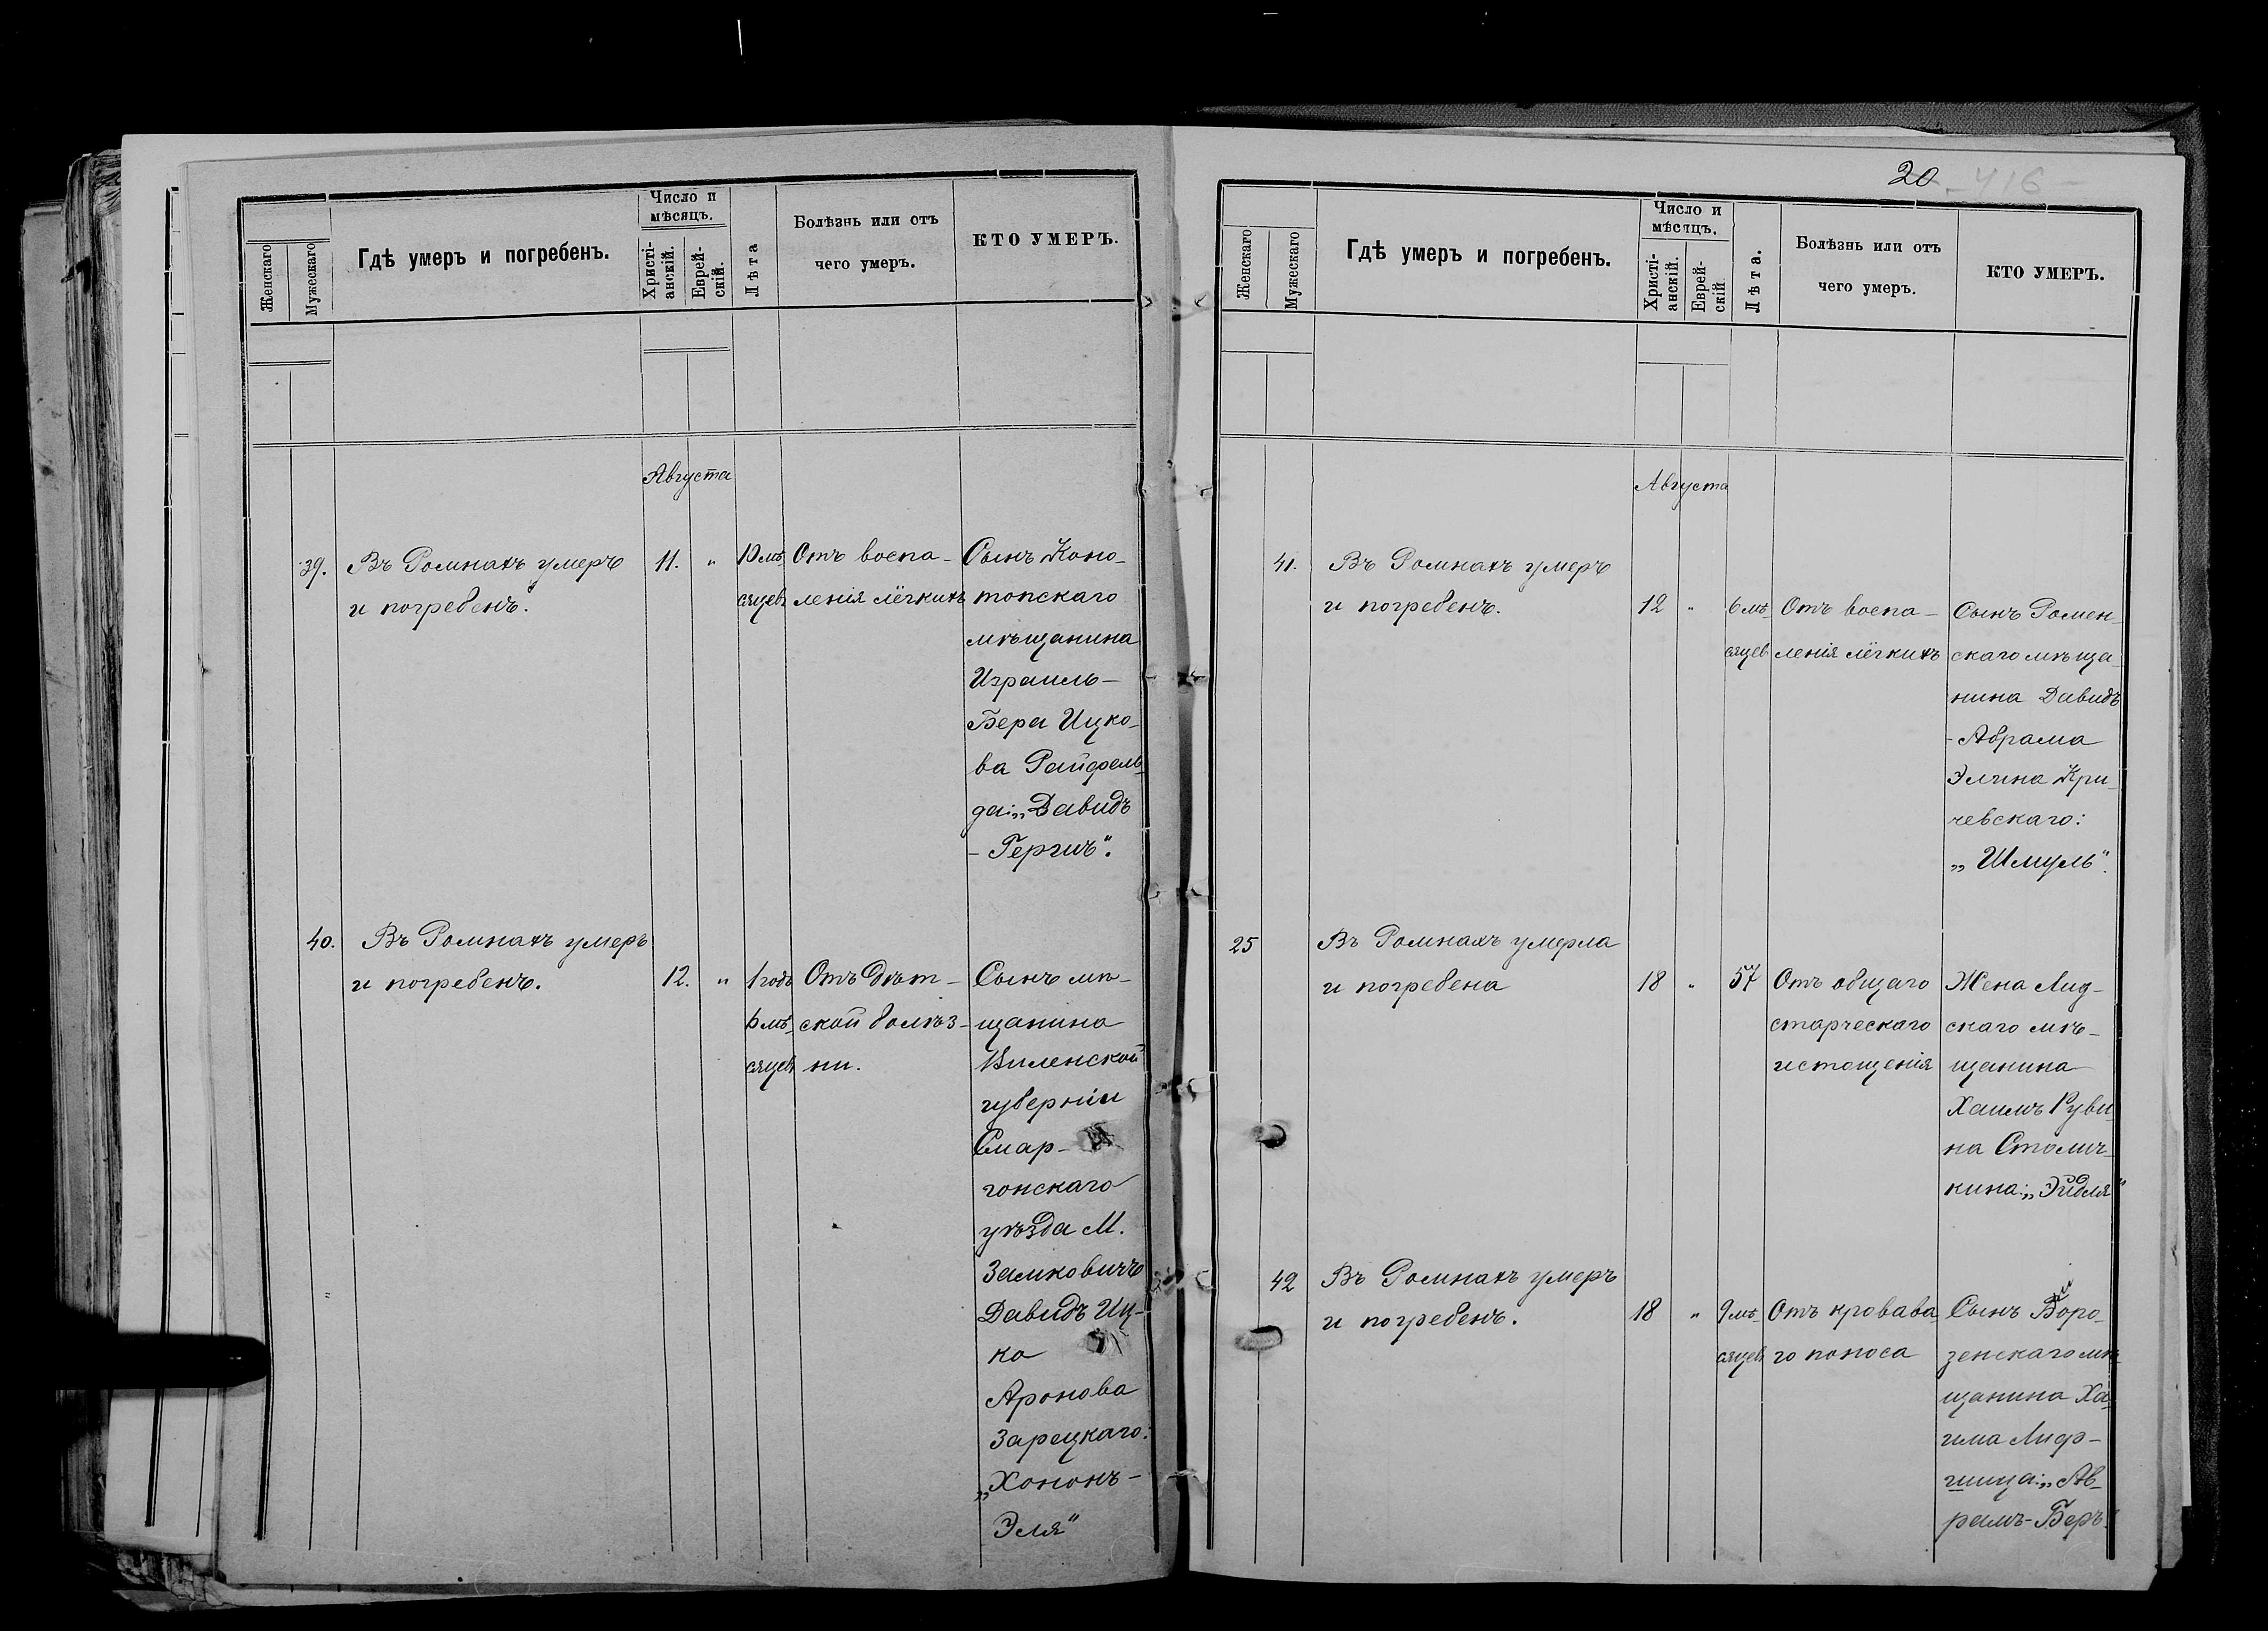 Женскаго
Мужескаго
Гдѣ умеръ и погребенъ.
Число и
мѣсяцъ.
Христі-
анскій.
Еврей-
скій.
Лѣта
Болѣзнь или отъ
чего умеръ.
КТО УМЕРЪ.
Августа
39.
Въ Ромнахъ умеръ
и погребенъ.
11.
"
10 мѣ
сяцев
Отъ воспа-
ленія лёгкихъ
Сынъ Коно-
топскаго
мѣщанина
Израиль-
Бера Ицко-
ва Райфель-
да: „Давидъ
- Гершъ".
40.
Въ Ромнахъ умеръ
и погребенъ.
12.
"
1 годъ
6 мѣ-
сяцев
Отъ дѣт-
ской болѣз-
ни.
Сынъ мѣ-
щанина
Виленской
губерніи
Смар-
гонскаго
уѣзда М.
Замковичъ
Давидъ Иц-
ко
Аронова
Зарецкаго:
„Хононъ-
Эля"
20
-416-
Женскаго
Мужескаго
Гдѣ умеръ и погребенъ.
Число и
мѣсяцъ.
Христі-
анскій.
Еврей-
скій
Лѣта.
Болѣзнь или отъ
чего умеръ.
КТО УМЕРЪ.
Августа
41.
Въ Ромнахъ умеръ
и погребенъ.
12
"
6 мѣ-
сяцев
Отъ воспа-
ленія лёгкихъ
Сынъ Ромен-
скаго мѣща-
нина Давидъ
- Абрама
Элина Кри-
чевскаго:
„Шмуль".
25
Въ Ромнахъ умерла
и погребена
18
"
57
Отъ общаго
старческаго
истощенія
Жена Лид-
скаго мѣ-
щанина
Хаимъ Руви
на Столич-
кина: „Эйдля"
42
Въ Ромнахъ умеръ
и погребенъ.
18
"
9 мѣ-
сяцев
Отъ кровава
го поноса
Сынъ
зенскаго мѣ
щанина Ха-
има Лиф-
шица: „Аб-
рамъ-Беръ.